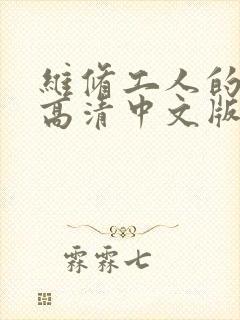 维脩工人的
高清中文版
霖霖七